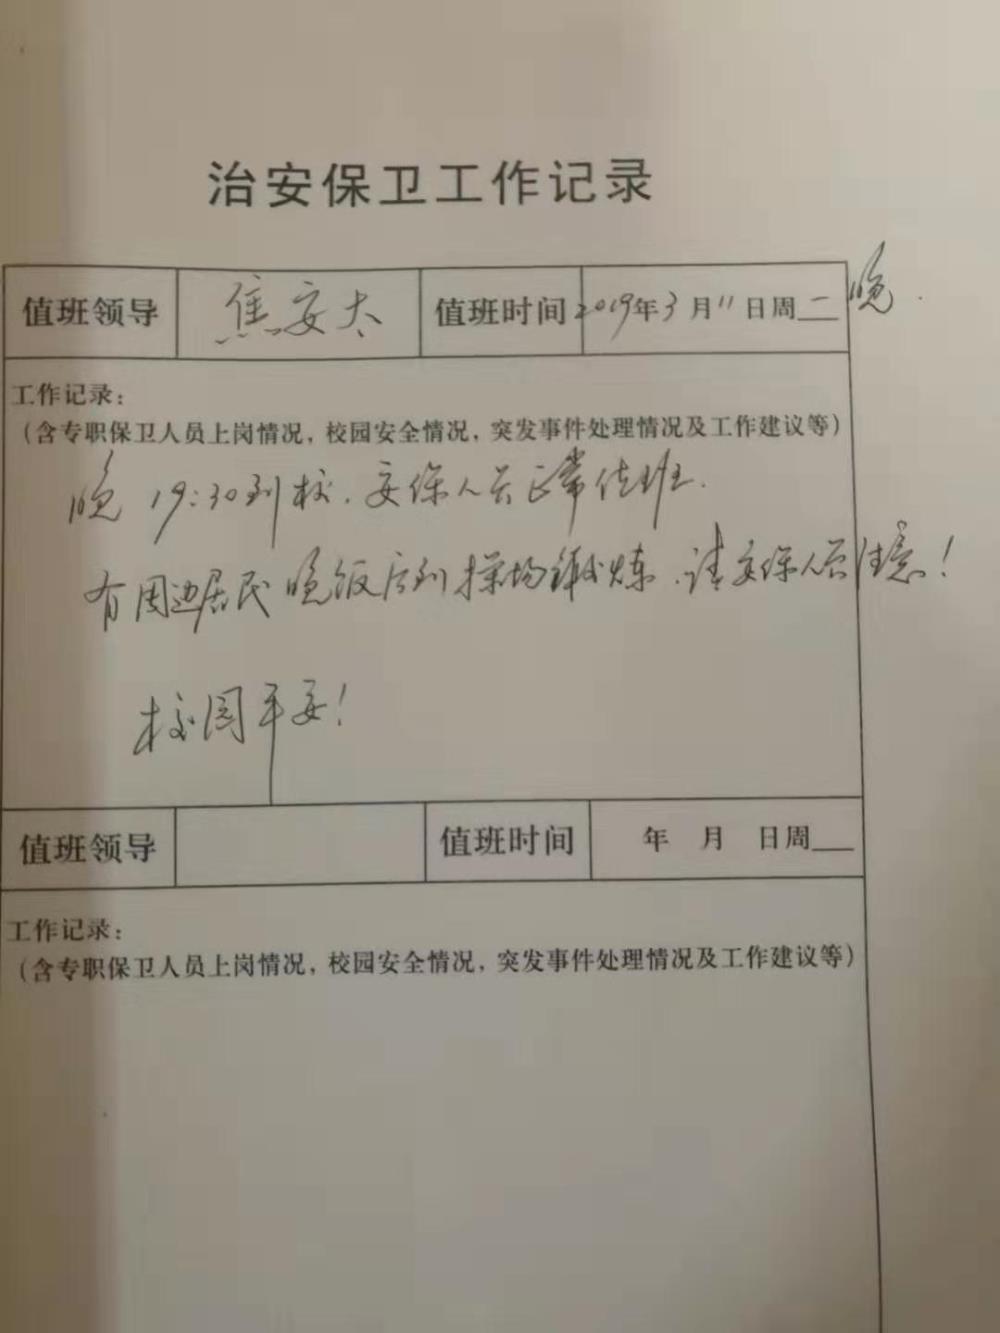 治安保卫工作记录
值班领导 焦安太 值班时间 2019年3月11日周一 晚.
工作记录：
（含专职保卫人员上岗情况，校园安全情况，突发事件处理情况及工作建议等）
晚19:30到校，安保人员正常值班.
有周边居民晚饭后到操场锻炼，请安保人员注意！
校园平安！
值班领导 值班时间 年 月 日周
工作记录：
（含专职保卫人员上岗情况，校园安全情况，突发事件处理情况及工作建议等）